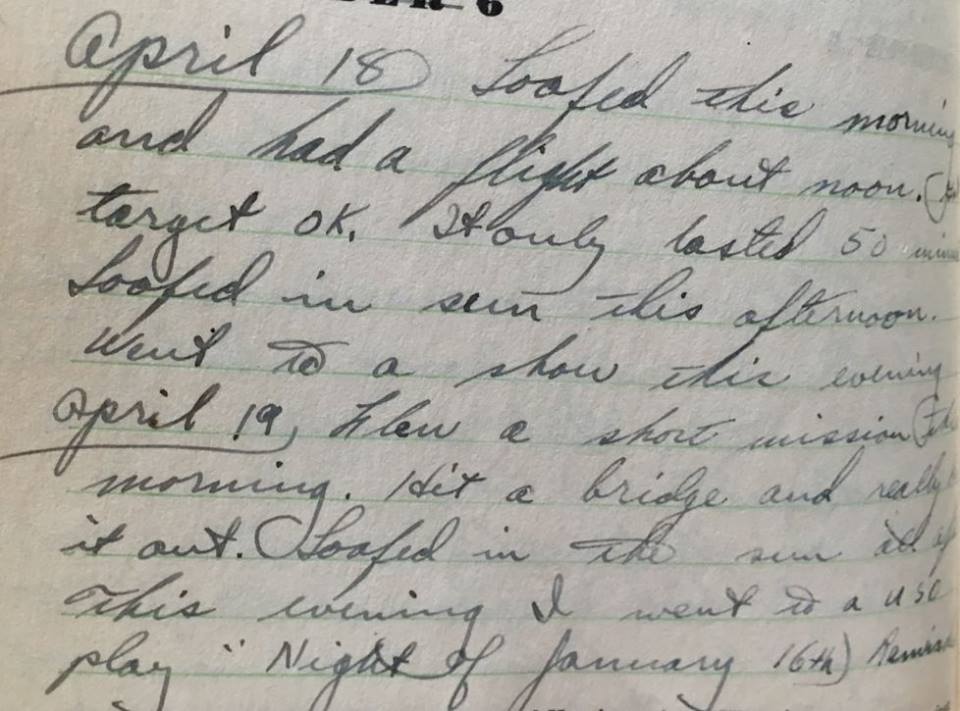 April 18 Loafed this morning
and had a flight about noon. (
target OK. It only lasted 50
Loafed in sun this afternoon.
Went to a show this evening
April 19, Flew a short mission (
morning. Hit a bridge and really
it out. Loafed in the sun all
This evening I went to a USO
play "Night of January 16th)